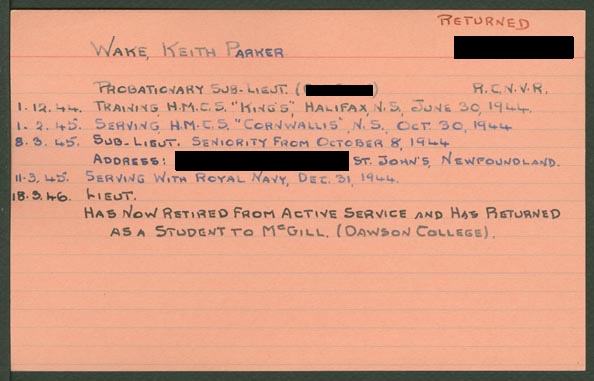 RETURNED
WAKE, KEITH PARKER
PROBATIONARY SUB-LIEUT. ( ) R.C.N.V.R.
1.12.44. TRAINING, H.M.C.S. "KING'S", HALIFAX, N.S., JUNE 30, 1944.
1.2.45. SERVING, H.M.C.S. "CORNWALLIS", N.S., OCT. 30, 1944
8.3.45. SUB. LIEUT. SENIORITY FROM OCTOBER 8, 1944
ADDRESS: ST. JOHN'S, NEWFOUNDLAND.
11.3.45. SERVING WITH ROYAL NAVY, DEC. 31, 1944.
18.3.46. LIEUT.
HAS NOW RETIRED FROM ACTIVE SERVICE AND HAS RETURNED
AS A STUDENT TO MCGILL. (DAWSON COLLEGE).